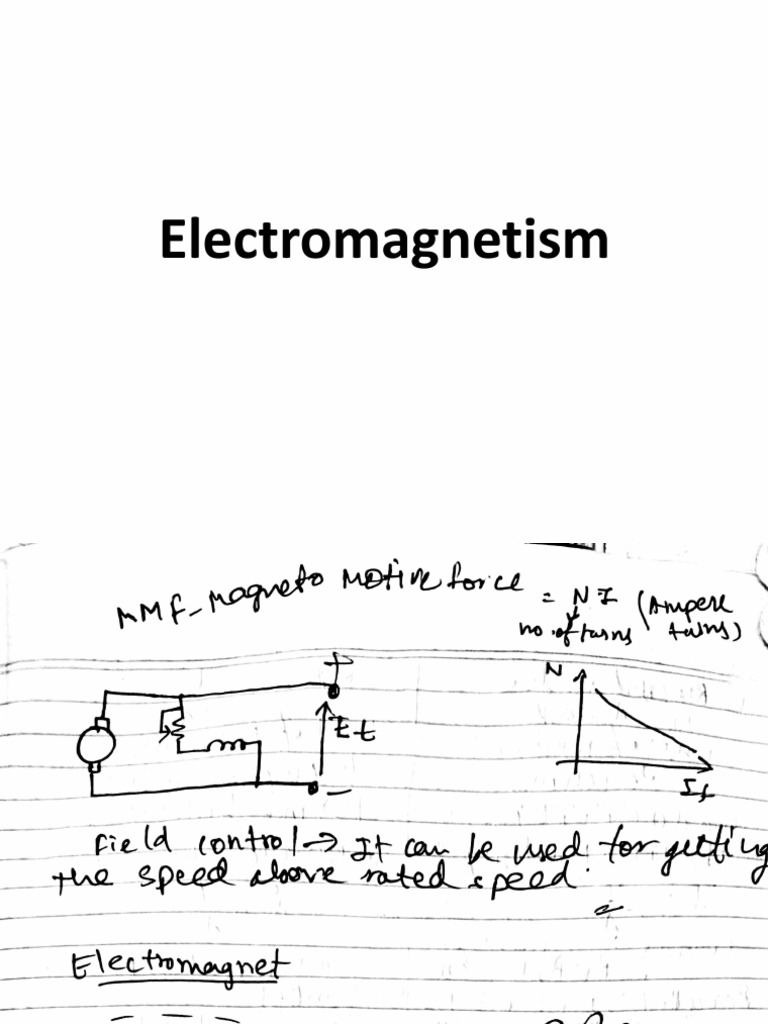 Electromagnetism
MMF - Magneto Motive force = NI (Ampere turns)
no. of turns
+
Et
-
N
If
Field control → It can be used for getting
the speed above rated speed.
Electromagnet